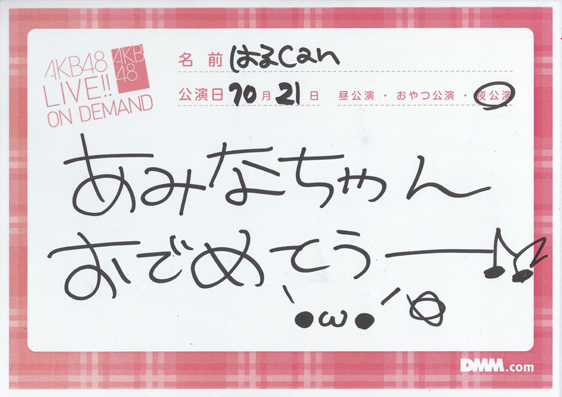 AKB48
LIVE!!
ON DEMAND
AKB
48
名前 はるcan
公演日 10月21日 昼公演・おやつ公演・夜公演
あみなちゃん
おでめてうー♪
'•ω•'
DMM.com